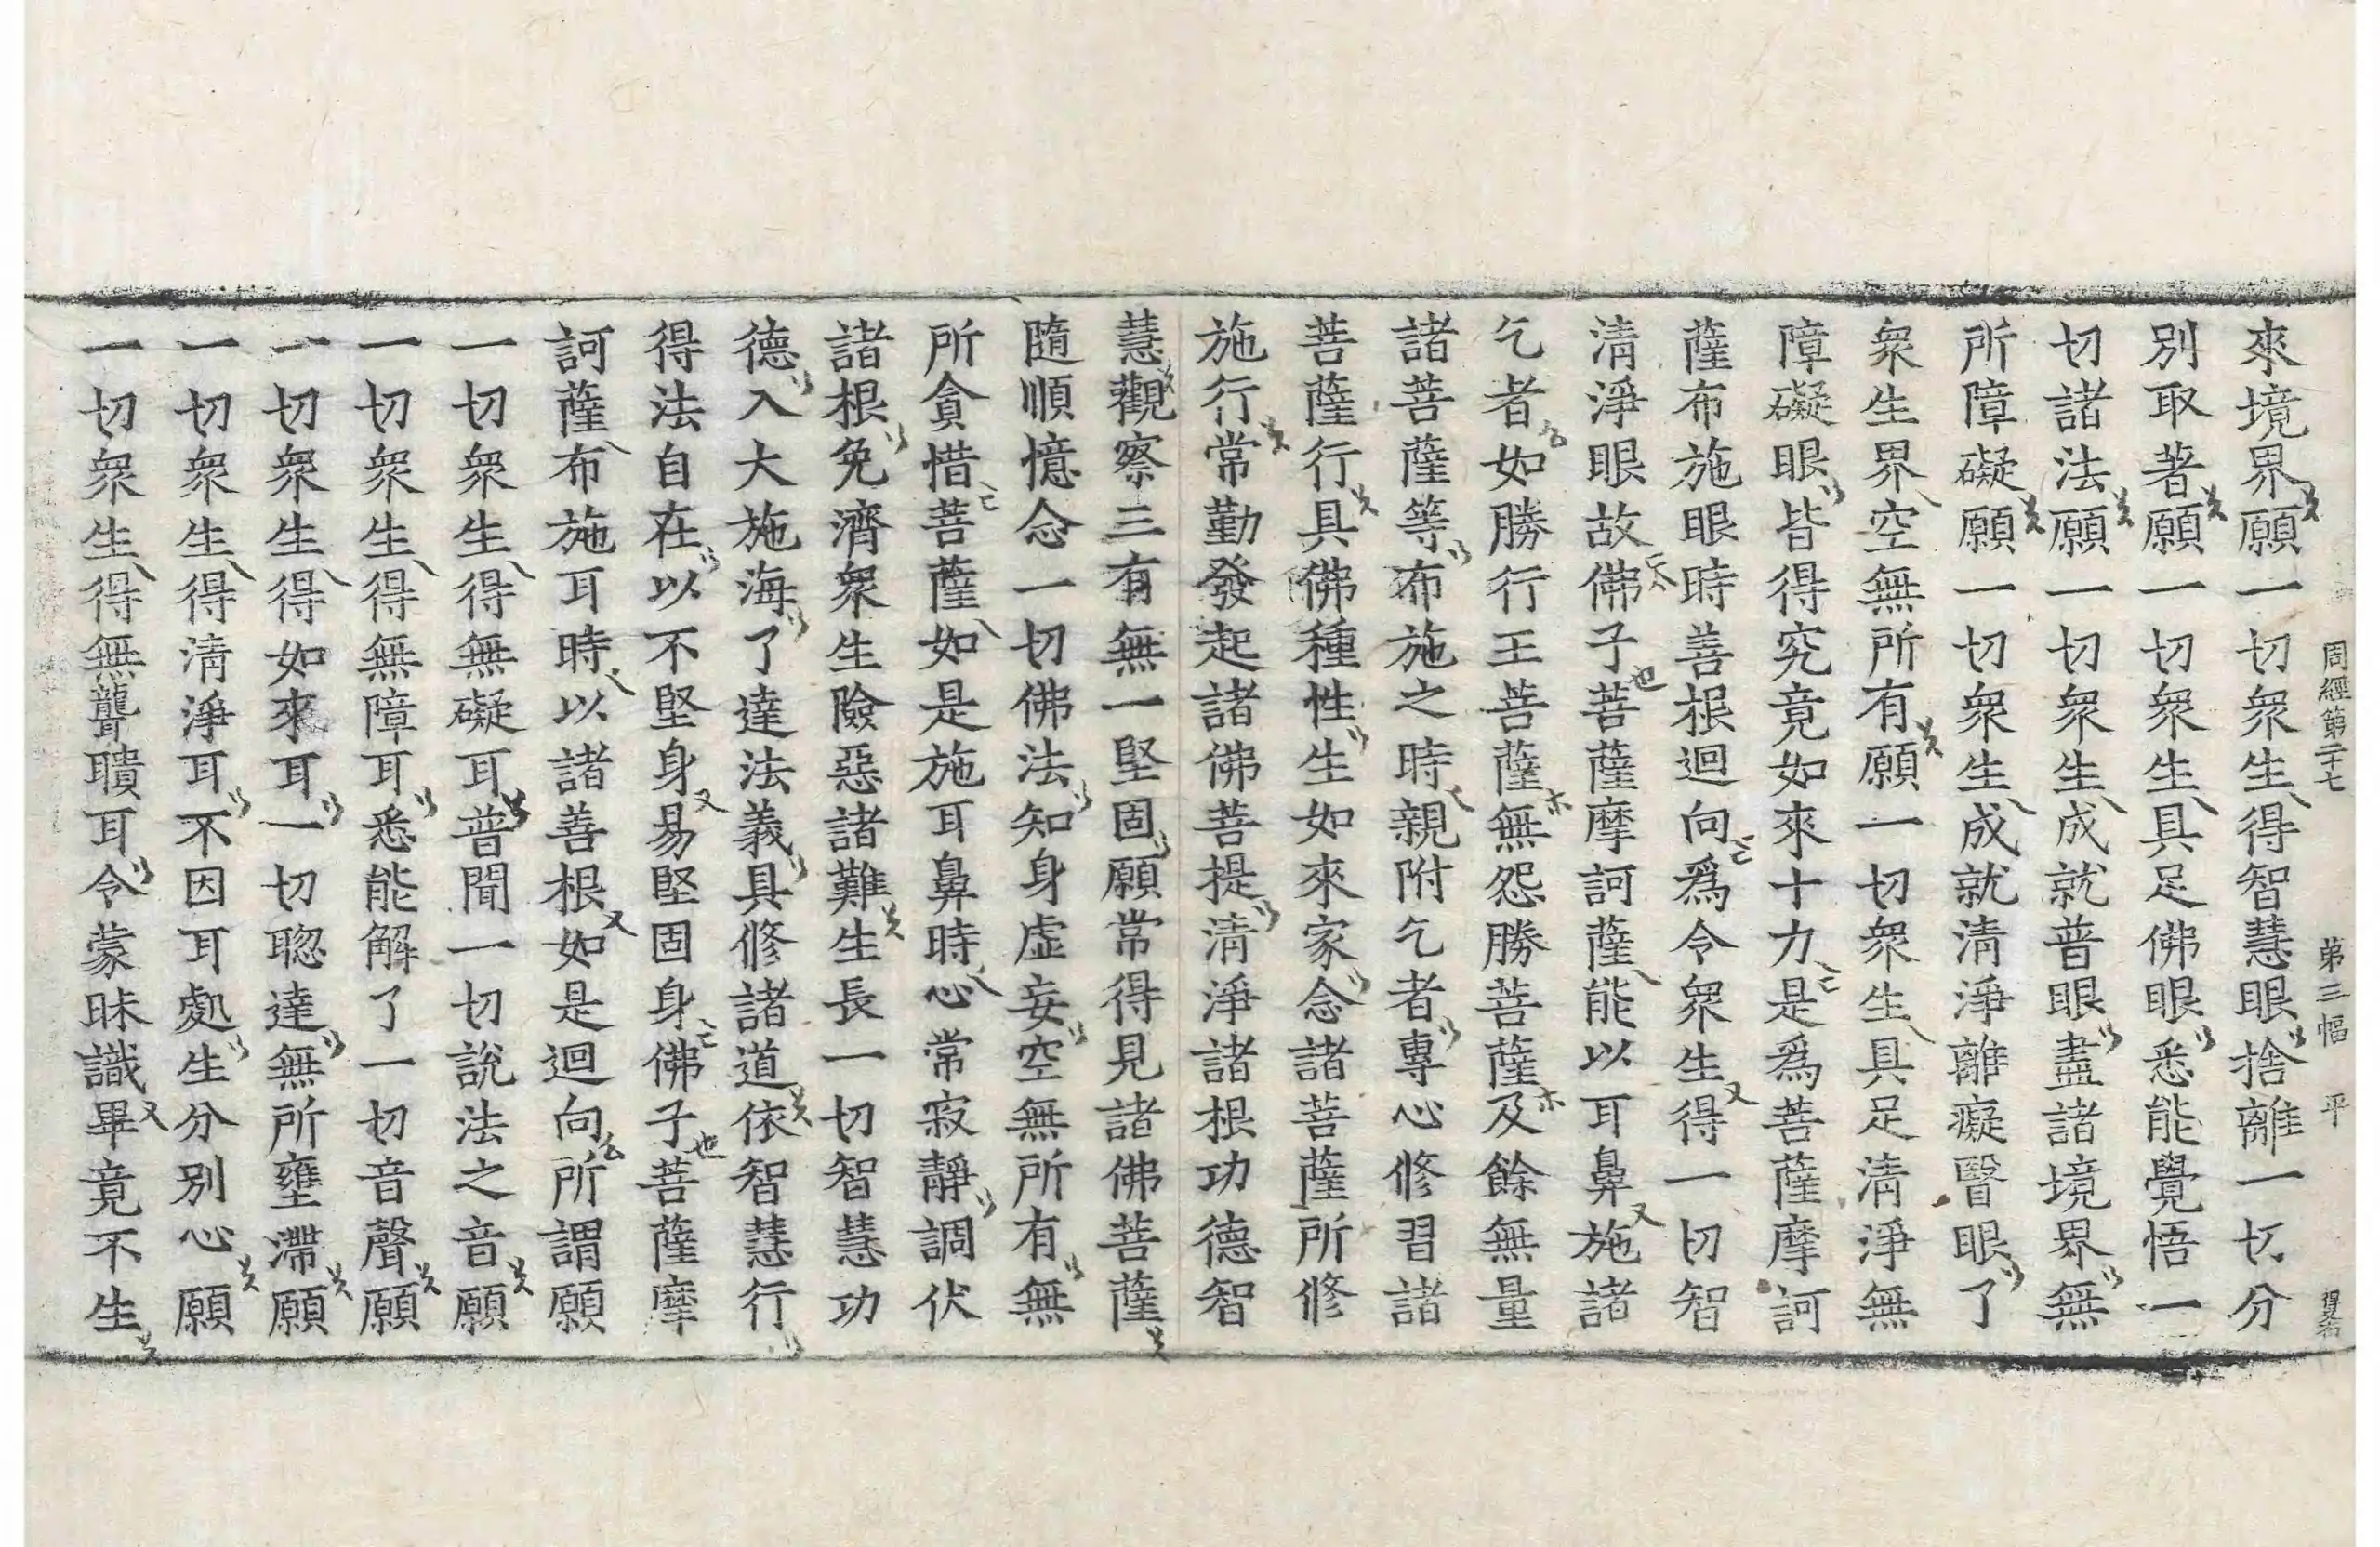 周經第二十七 第三幅 平 得名
來境界願一切衆生得智慧眼捨離一切分
別取著願一切衆生具足佛眼悉能覺悟一
切諸法願一切衆生成就普眼盡諸境界無
所障礙願一切衆生成就清淨離癡瞖眼了
衆生界空無所有願一切衆生具足清淨無
障礙眼皆得究竟如來十力是爲菩薩摩訶
薩布施眼時善根迴向爲令衆生得一切智
清淨眼故佛子菩薩摩訶薩能以耳鼻施諸
乞者如勝行王菩薩無怨勝菩薩及餘無量
諸菩薩等布施之時親附乞者專心修習諸
菩薩行具佛種性生如來家念諸菩薩所修
施行常勤發起諸佛菩提清淨諸根功德智
慧觀察三有無一堅固願常得見諸佛菩薩
隨順憶念一切佛法知身虛妄空無所有無
所貪惜菩薩如是施耳鼻時心常寂靜調伏
諸根免濟衆生險惡諸難生長一切智慧功
德入大施海了達法義具修諸道依智慧行
得法自在以不堅身易堅固身佛子菩薩摩
訶薩布施耳時以諸善根如是迴向所謂願
一切衆生得無礙耳普聞一切說法之音願
一切衆生得無障耳悉能解了一切音聲願
一切衆生得如來耳一切聦達無所壅滯願
一切衆生得清淨耳不因耳處生分別心願
一切衆生得無聾聵耳令蒙昧識畢竟不生